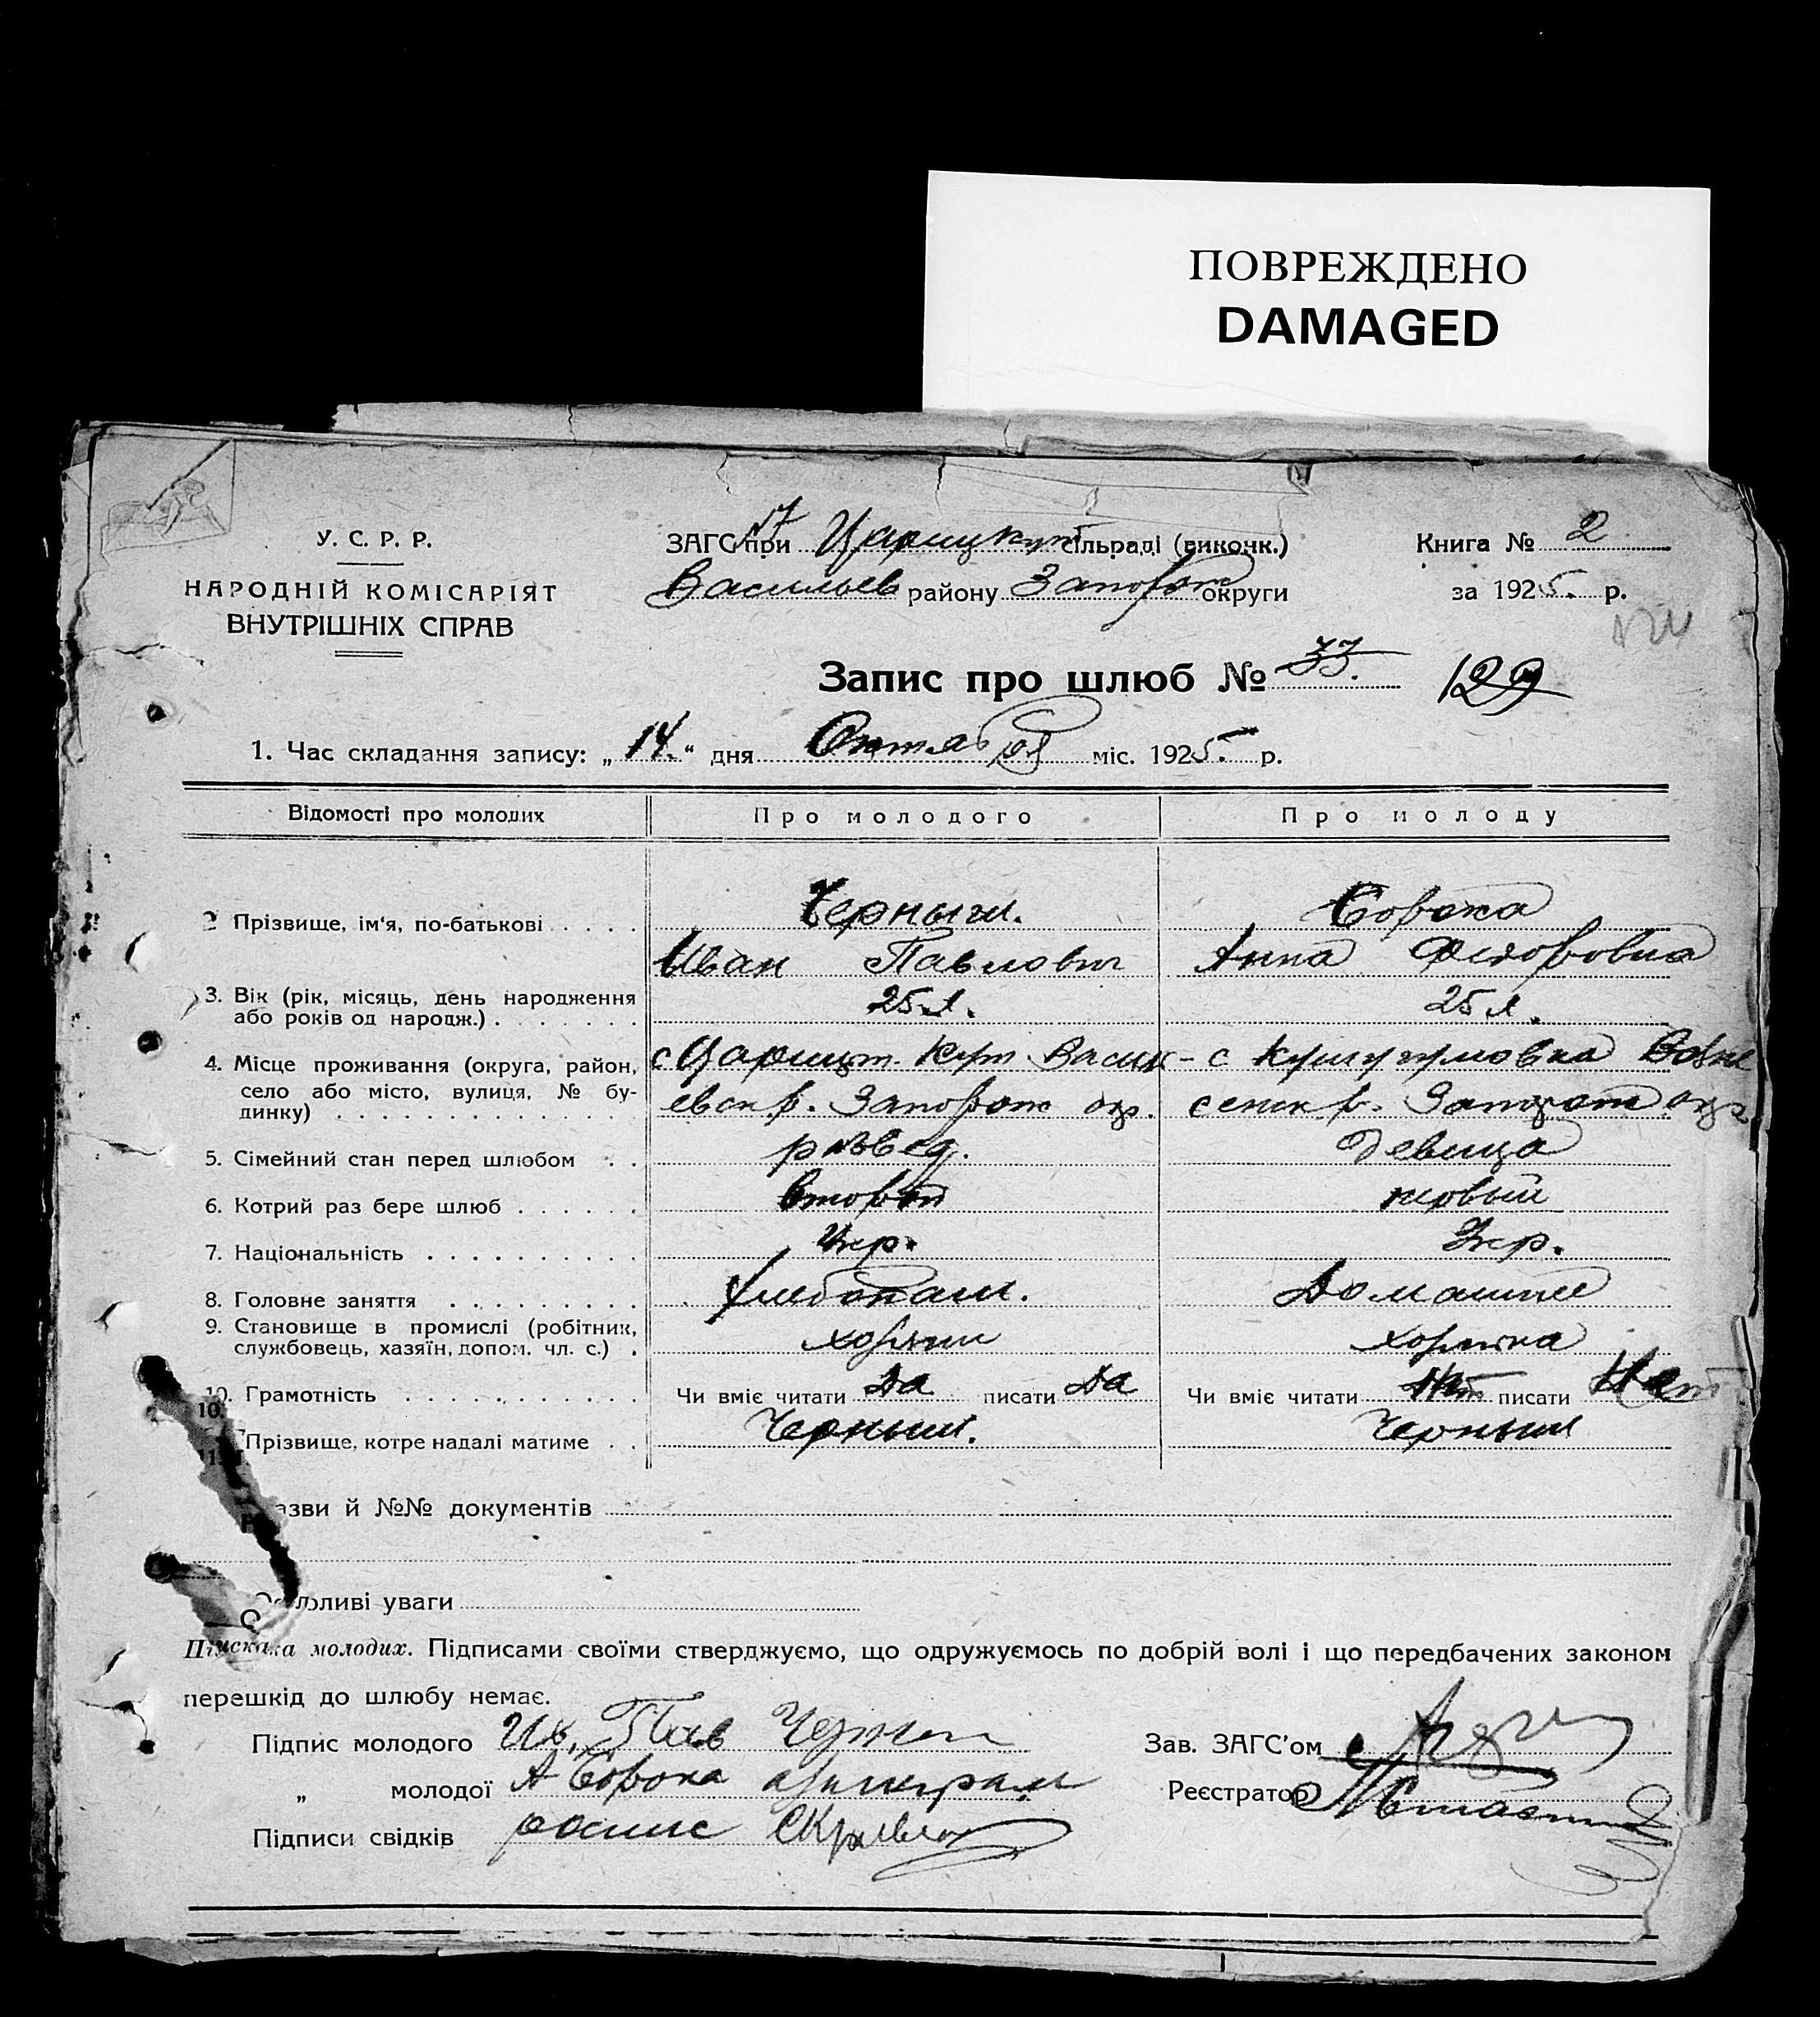 ПОВРЕЖДЕНО
DAMAGED
У. С. Р. Р.
НАРОДНІЙ КОМІСАРІЯТ
ВНУТРІШНІХ СПРАВ
ЗАГС при Царицкут сільраді (виконк.)
Васильев району Запорож округи
Книга № 2
за 1925. р.
Запис про шлюб № 33. 129
1. Час складання запису: „14.“ дня Октября міс. 1925. р.
Відомості про молодих
Про молодого
Про молоду
2 Прізвище, ім'я, по-батькові
Черныш.
Сорока
Иван Павлович
Анна Федоровна
3. Вік (рік, місяць, день народження
або років од народж.)
25 л.
25 л.
4. Місце проживання (округа, район,
село або місто, вулиця, № бу-
динку)
с Царицт. Кут Василь-
евск р. Запорож окр.
с Кушугумовка Возне
сенск р. Запорож окр
5. Сімейний стан перед шлюбом
развед.
девица
6. Котрий раз бере шлюб
второй
первый
7. Національність
Укр.
Укр.
8. Головне заняття
Хлебопаш.
Домашние
9. Становище в промислі (робітник,
службовець, хазяїн, допом. чл. с.)
хозяин
хозяйка
10. Грамотність
10.
Чи вміє читати Да писати Да
Чи вміє читати Нет писати Нет
11. Прізвище, котре надалі матиме
Черныш.
Черныш
азви й №№ документів
ливі уваги
Підписка молодих. Підписами своїми стверджуємо, що одружуємось по добрій волі і що передбачених законом
перешкід до шлюбу немає.
Підпис молодого Ив. Пав Черныш
„ молодої А Сорока неграм
Підписи свідків роспис
Зав. ЗАГС'ом
Реєстратор